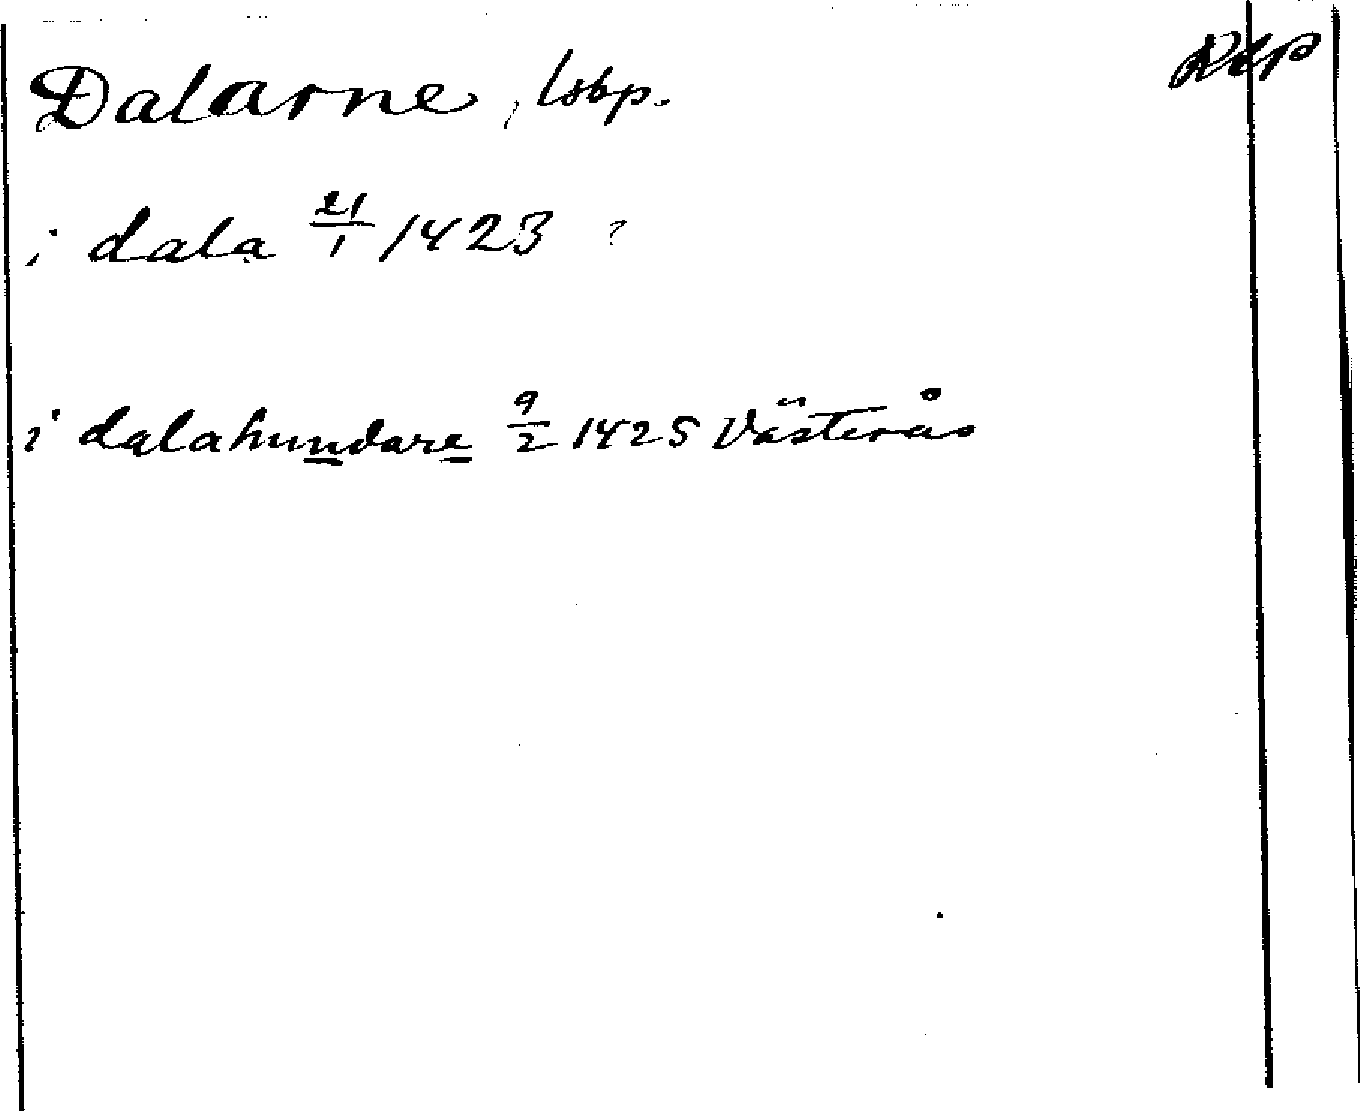 Dalarne, lsbp. Rep
i dala 21/1 1423 ?
i dalahundare 9/2 1425 Västerås